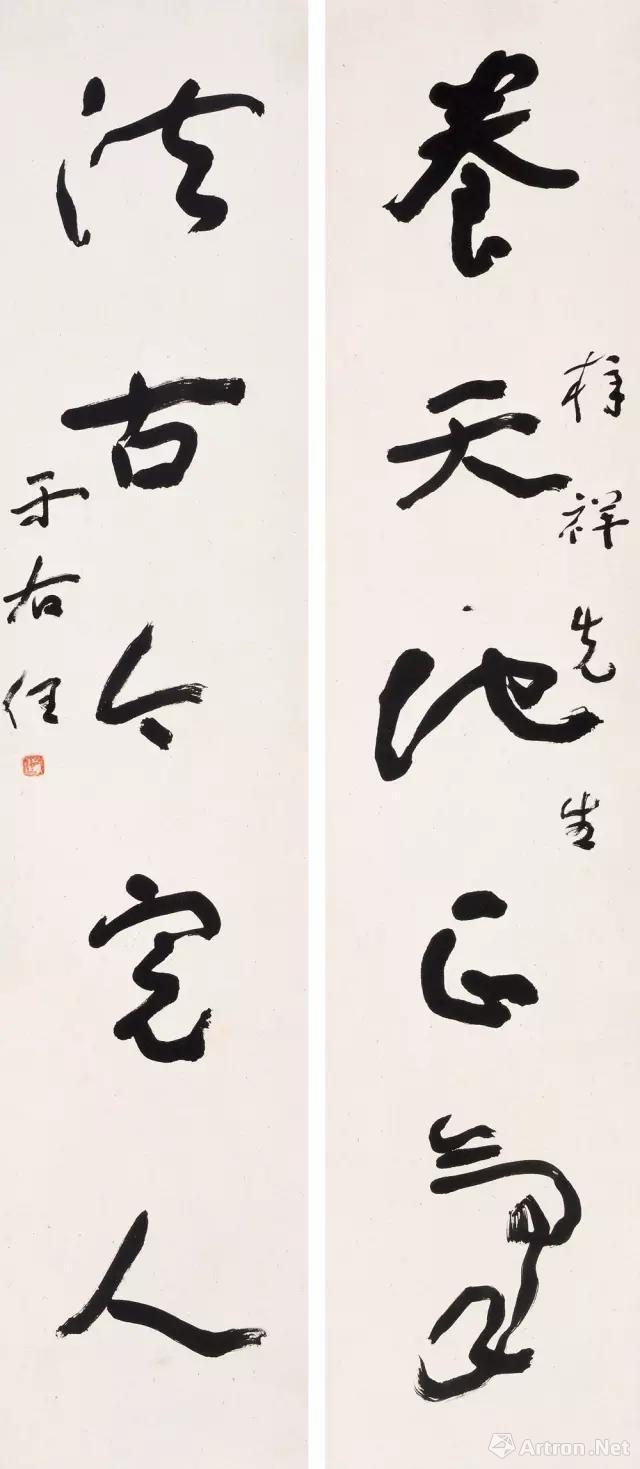 祥先生
養天地正氣
法古今完人
于右任
Artron.Net